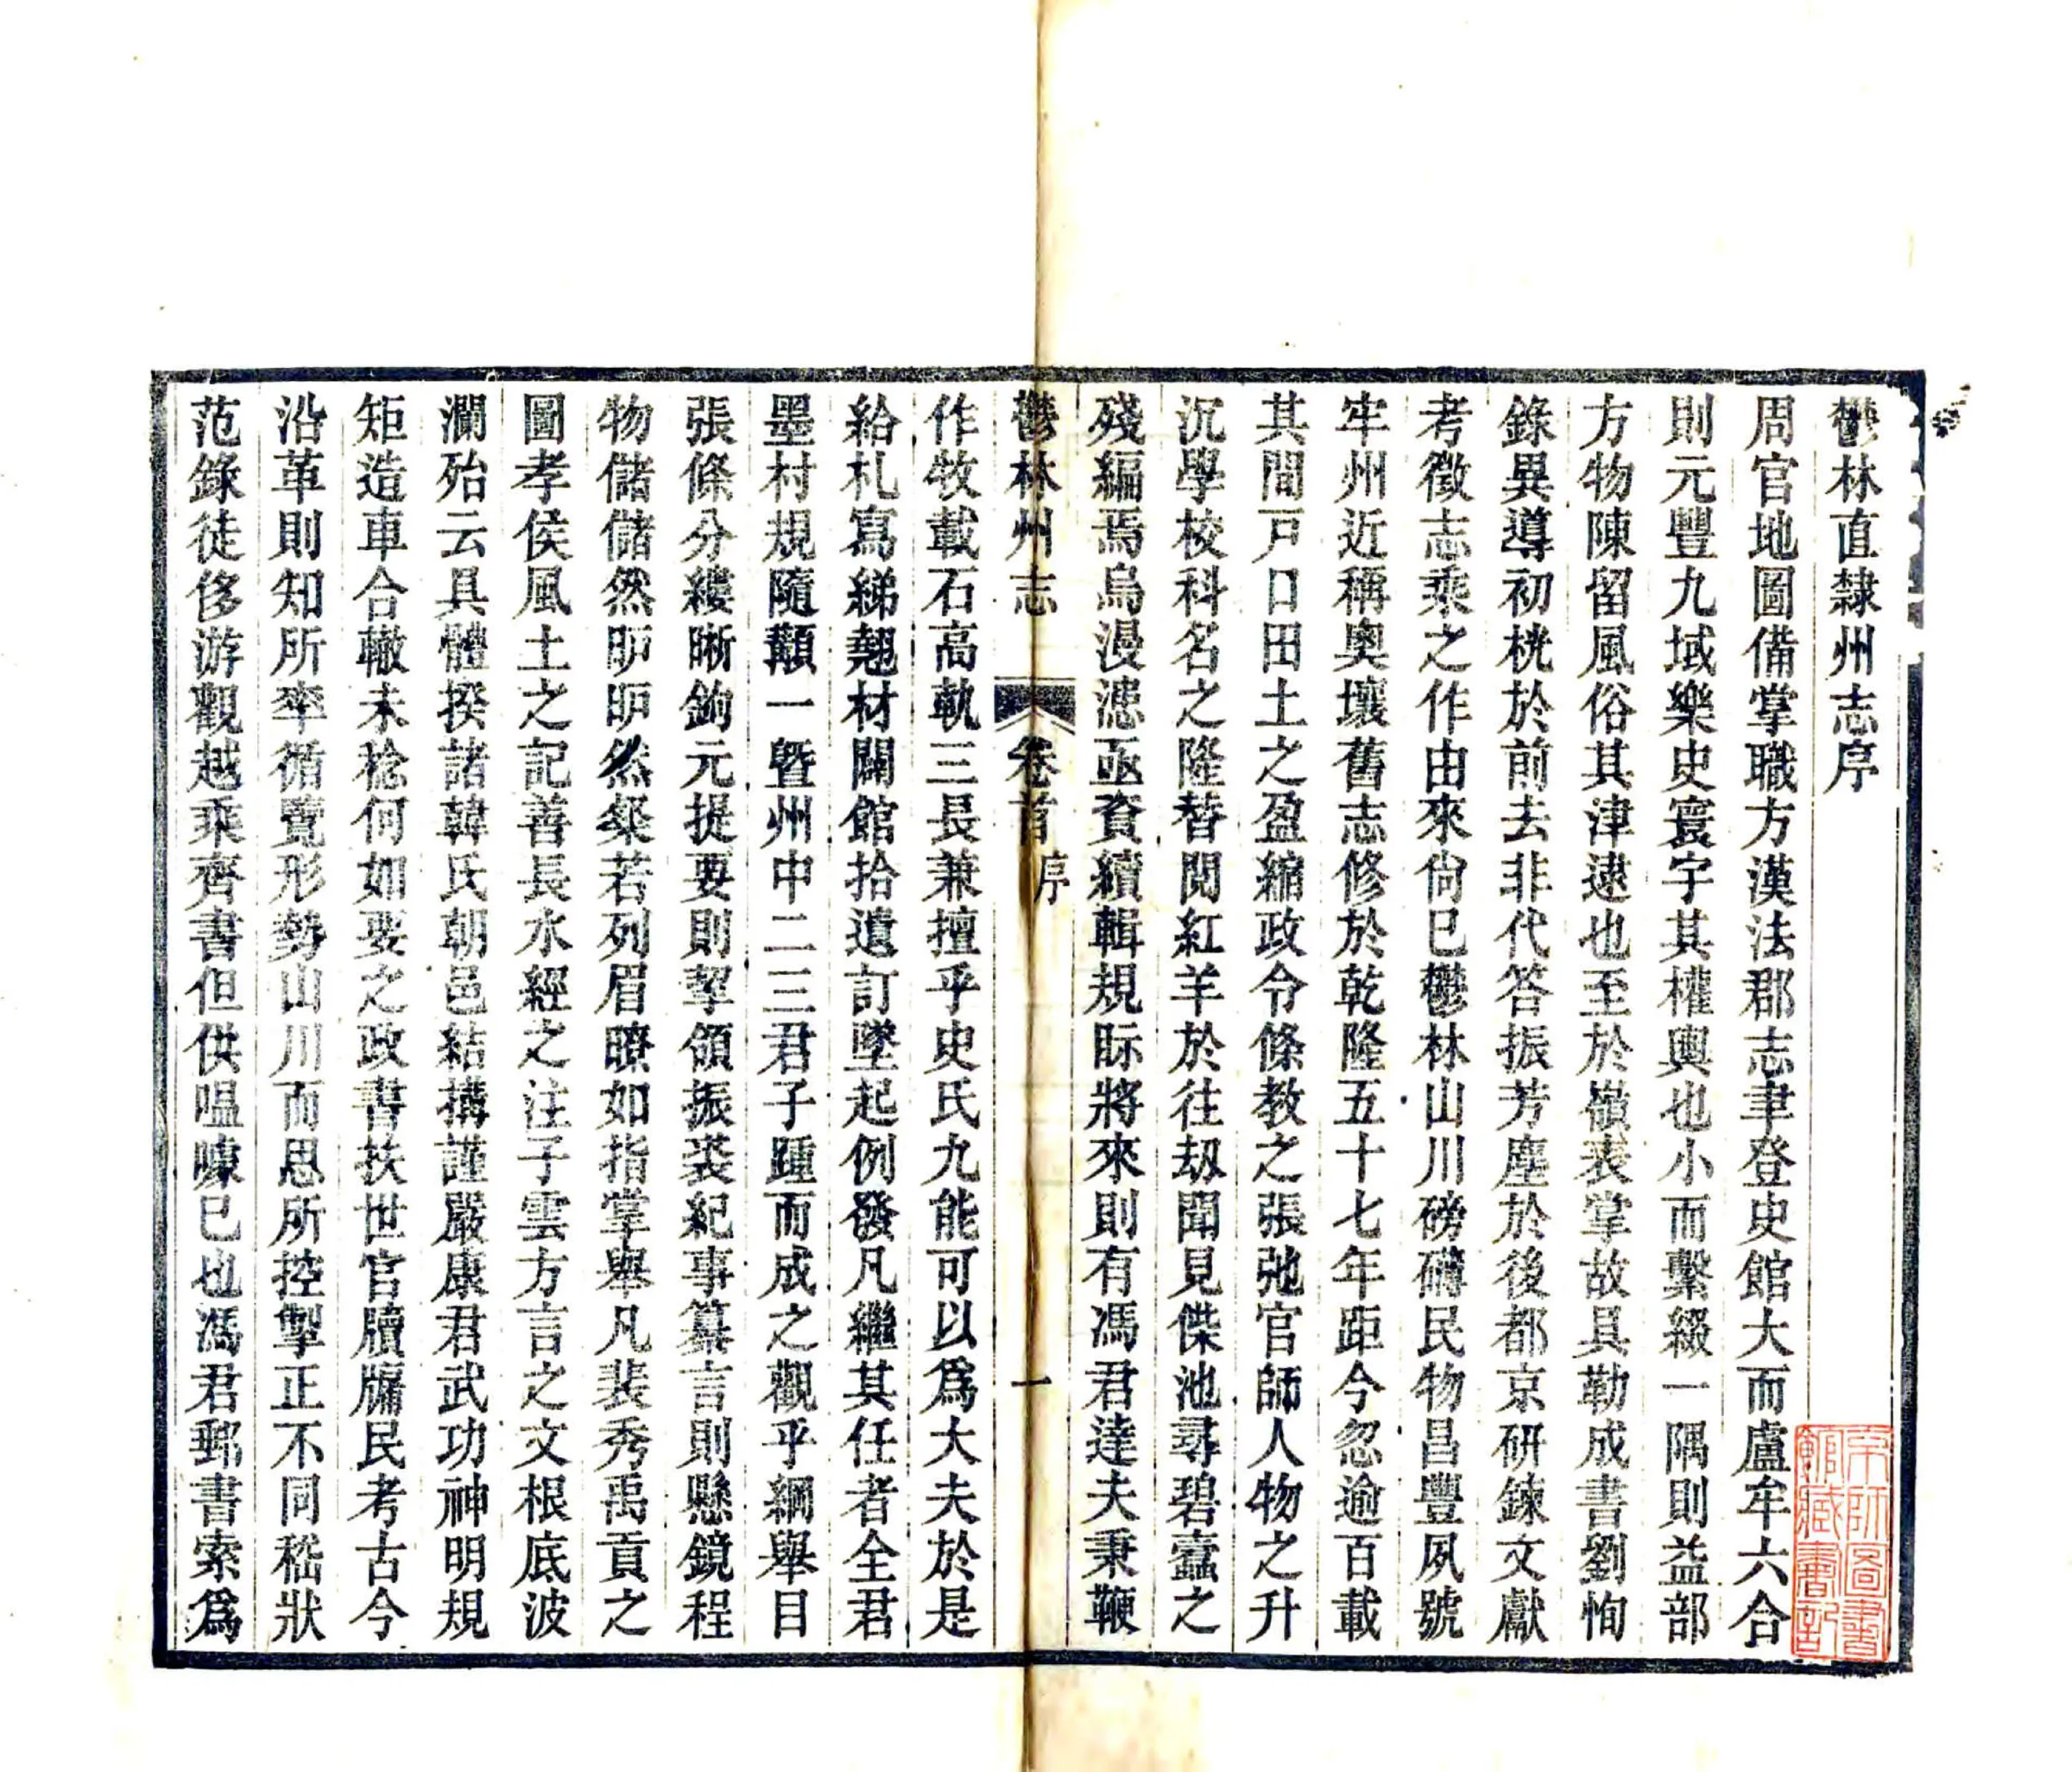 鬱林直隸州志序
周官地圖備掌職方漢法郡志聿登史館大而盧牟六合
則元豐九域樂史寰宇其權輿也小而繫綴一隅則益部
方物陳留風俗其津逮也至於嶺表掌故具勒成書劉恂
錄異導初桄於前去非代答振芳塵於後都京研鍊文獻
考徵志乘之作由來尙巳鬱林山川磅礴民物昌豐夙號
牢州近稱奧壤舊志修於乾隆五十七年距今忽逾百載
其間戸口田土之盈縮政令條教之張弛官師人物之升
沉學校科名之隆替閱紅羊於往刼聞見傑池尋碧蠹之
殘編焉烏漫漶亟資續輯規眎將來則有馮君達夫秉鞭
鬱林州志 卷首 序 一
作牧載石高軌三長兼擅乎史氏九能可以爲大夫於是
給札寫綈翹材闢館拾遺訂墜起例發凡繼其任者全君
墨村規隨顜一曁州中二三君子踵而成之觀乎綱舉目
張條分縷晰鉤元提要則挈領振裘紀事纂言則懸鏡程
物儲儲然昈昈然粲若列眉瞭如指掌舉凡裴秀禹貢之
圖孝侯風土之記善長水經之注子雲方言之文根底波
瀾殆云具體揆諸韓氏朝邑結構謹嚴康君武功神明規
矩造車合轍未稔何如要之政書扶世官牘牖民考古今
沿革則知所率循覽形勢山川而思所控掣正不同嵇狀
范錄徒侈游觀越乘齊書但供嗢噱巳也馮君郵書索爲
京師圖書
館藏書記